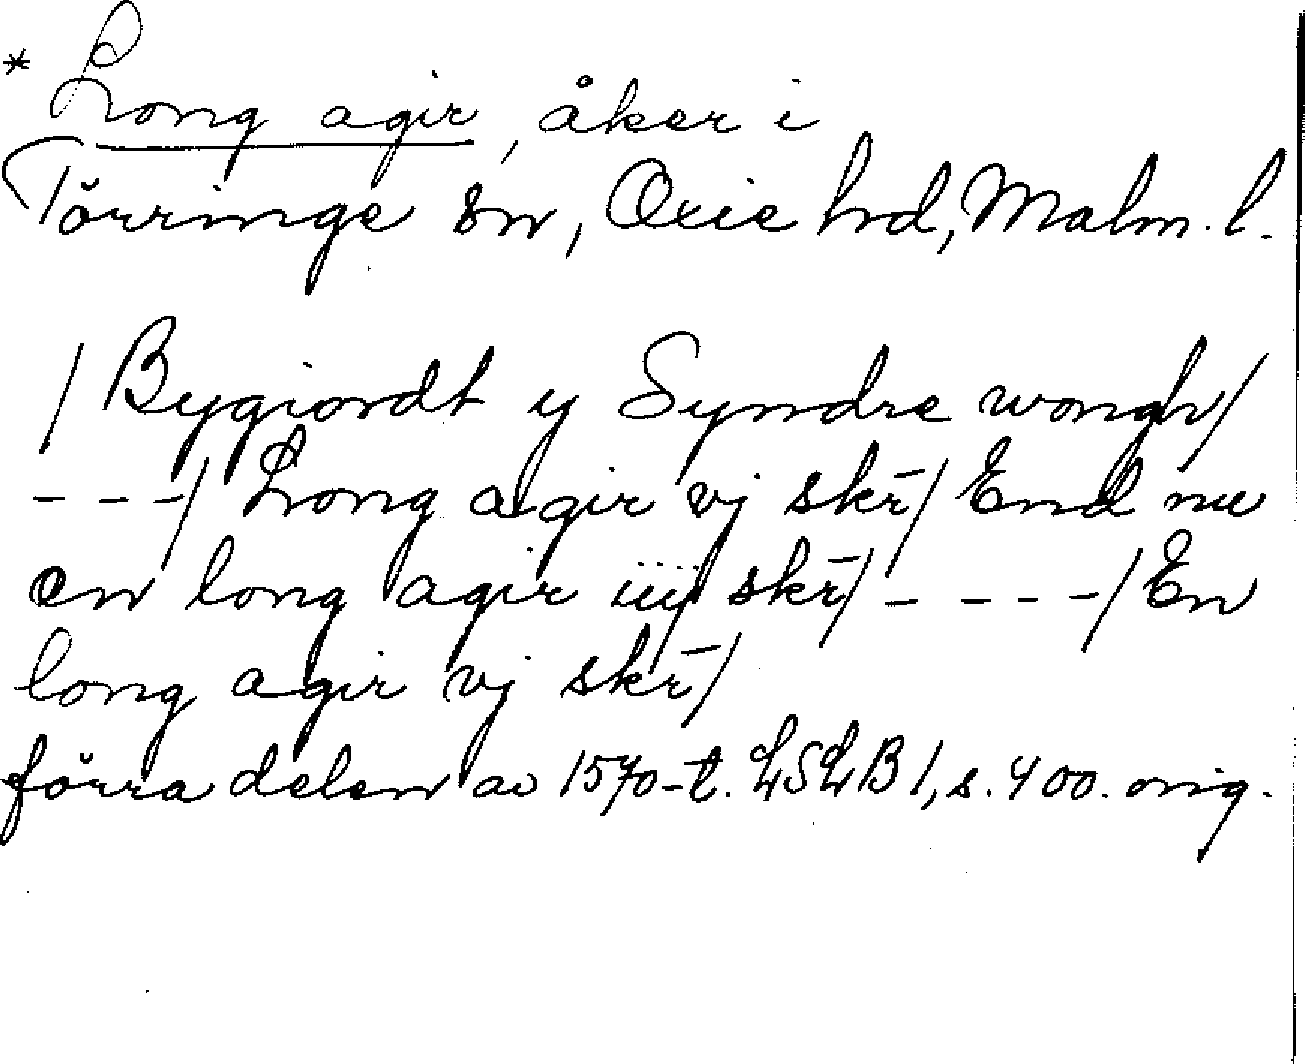 * Long agir, åker i
Törringe sn, Oxie hd, Malm. l.
/ Bygiordt y Syndre wongh/
- - -/ Long agir vj skr̄/ End nu
en long agir iiij skr̄/ - - - -/ En
long agir vj skr̄/
förra delen av 1570-t. LSLB 1, s. 400. orig.